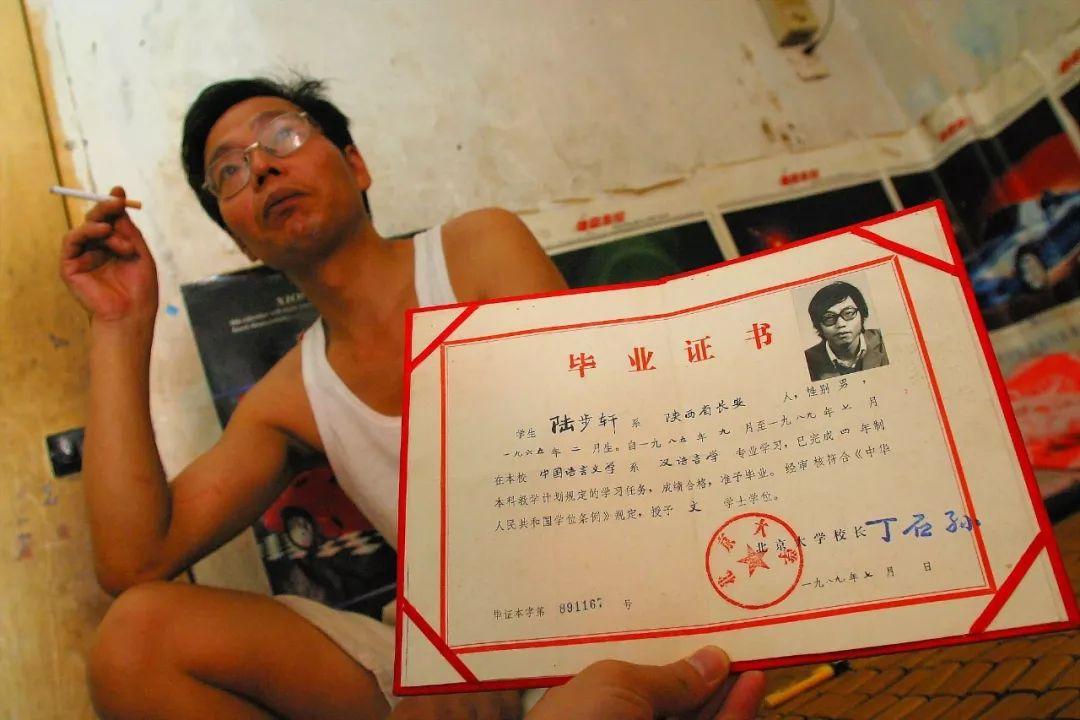 毕业证书
学生 陆步轩 系 陕西省长安 人，性别 男，
一九六五年 二 月生。自一九八五年 九 月至一九八九年 七 月
在本校 中国语言文学 系 汉语言学 专业学习，已完成 四 年制
本科教学计划规定的学习任务，成绩合格，准予毕业。经审核符合《中华
人民共和国学位条例》规定，授予 文 学士学位。
北京大学
北京大学校长 丁石孙
一九八九年 七 月 日
毕证本字第 891167 号